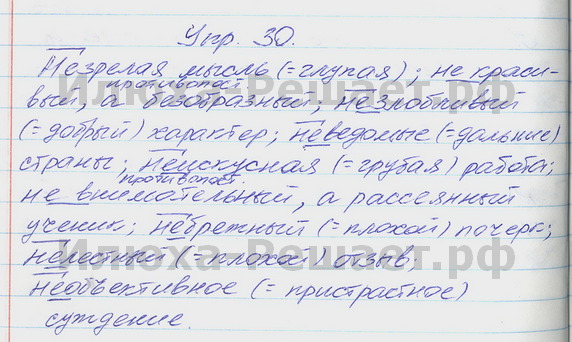 Упр. 30.
Незрелая мысль (=глупая); не краси-
противопост.
вый, а безобразный; незлобливый
(=добрый) характер; неведомые (=дальние)
страны; неискусная (=грубая) работа;
противопост.
не внимательный, а рассеянный
ученик; небрежный (=плохой) почерк;
нелестный (=плохой) отзыв;
необъективное (= пристрастное)
суждение.
Илюха-Решает.рф
Илюха-Решает.рф